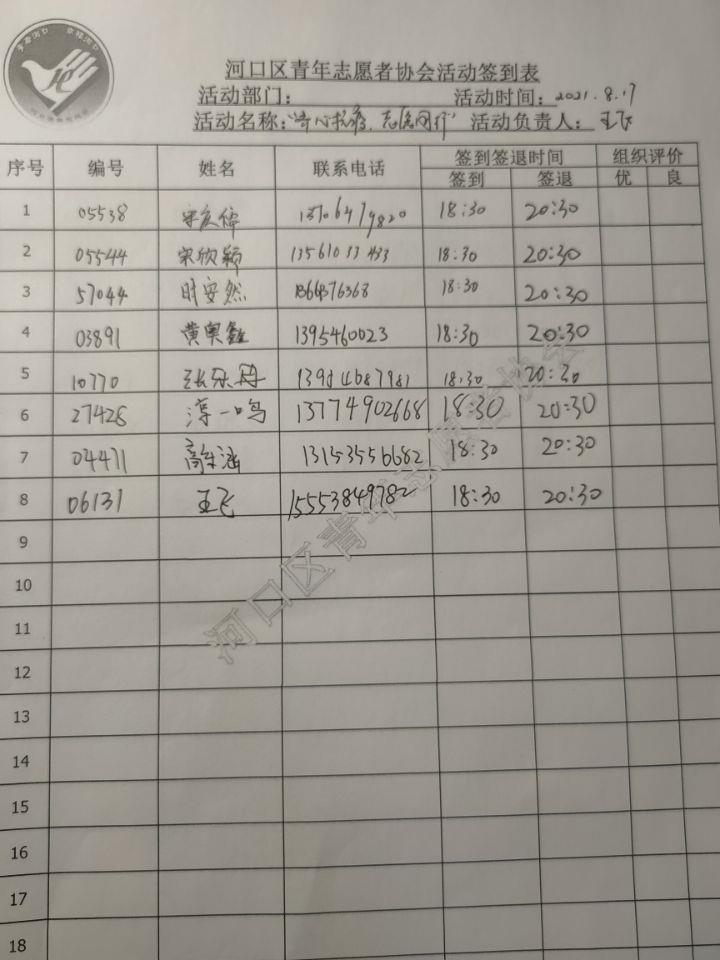 河口区青年志愿者协会活动签到表
活动部门： 活动时间：2021.8.17
活动名称："齐心抗疫，志愿同行" 活动负责人：王飞
序号 编号 姓名 联系电话 签到签退时间 组织评价
签到 签退 优 良
1 05538 18:30 20:30
2 05544 宋欣颖 18:30 20:30
3 57044 时安然 18:30 20:30
4 03891 黄奥鑫 1395460023 18:30 20:30
5 10770 18:30 20:30
6 27428 淳一鸣 13774902668 18:30 20:30
7 04471 高乐涵 13153556682 18:30 20:30
8 06131 王飞 15553849782 18:30 20:30
9
10
11
12
13
14
15
16
17
18
河口区青年志愿者协会